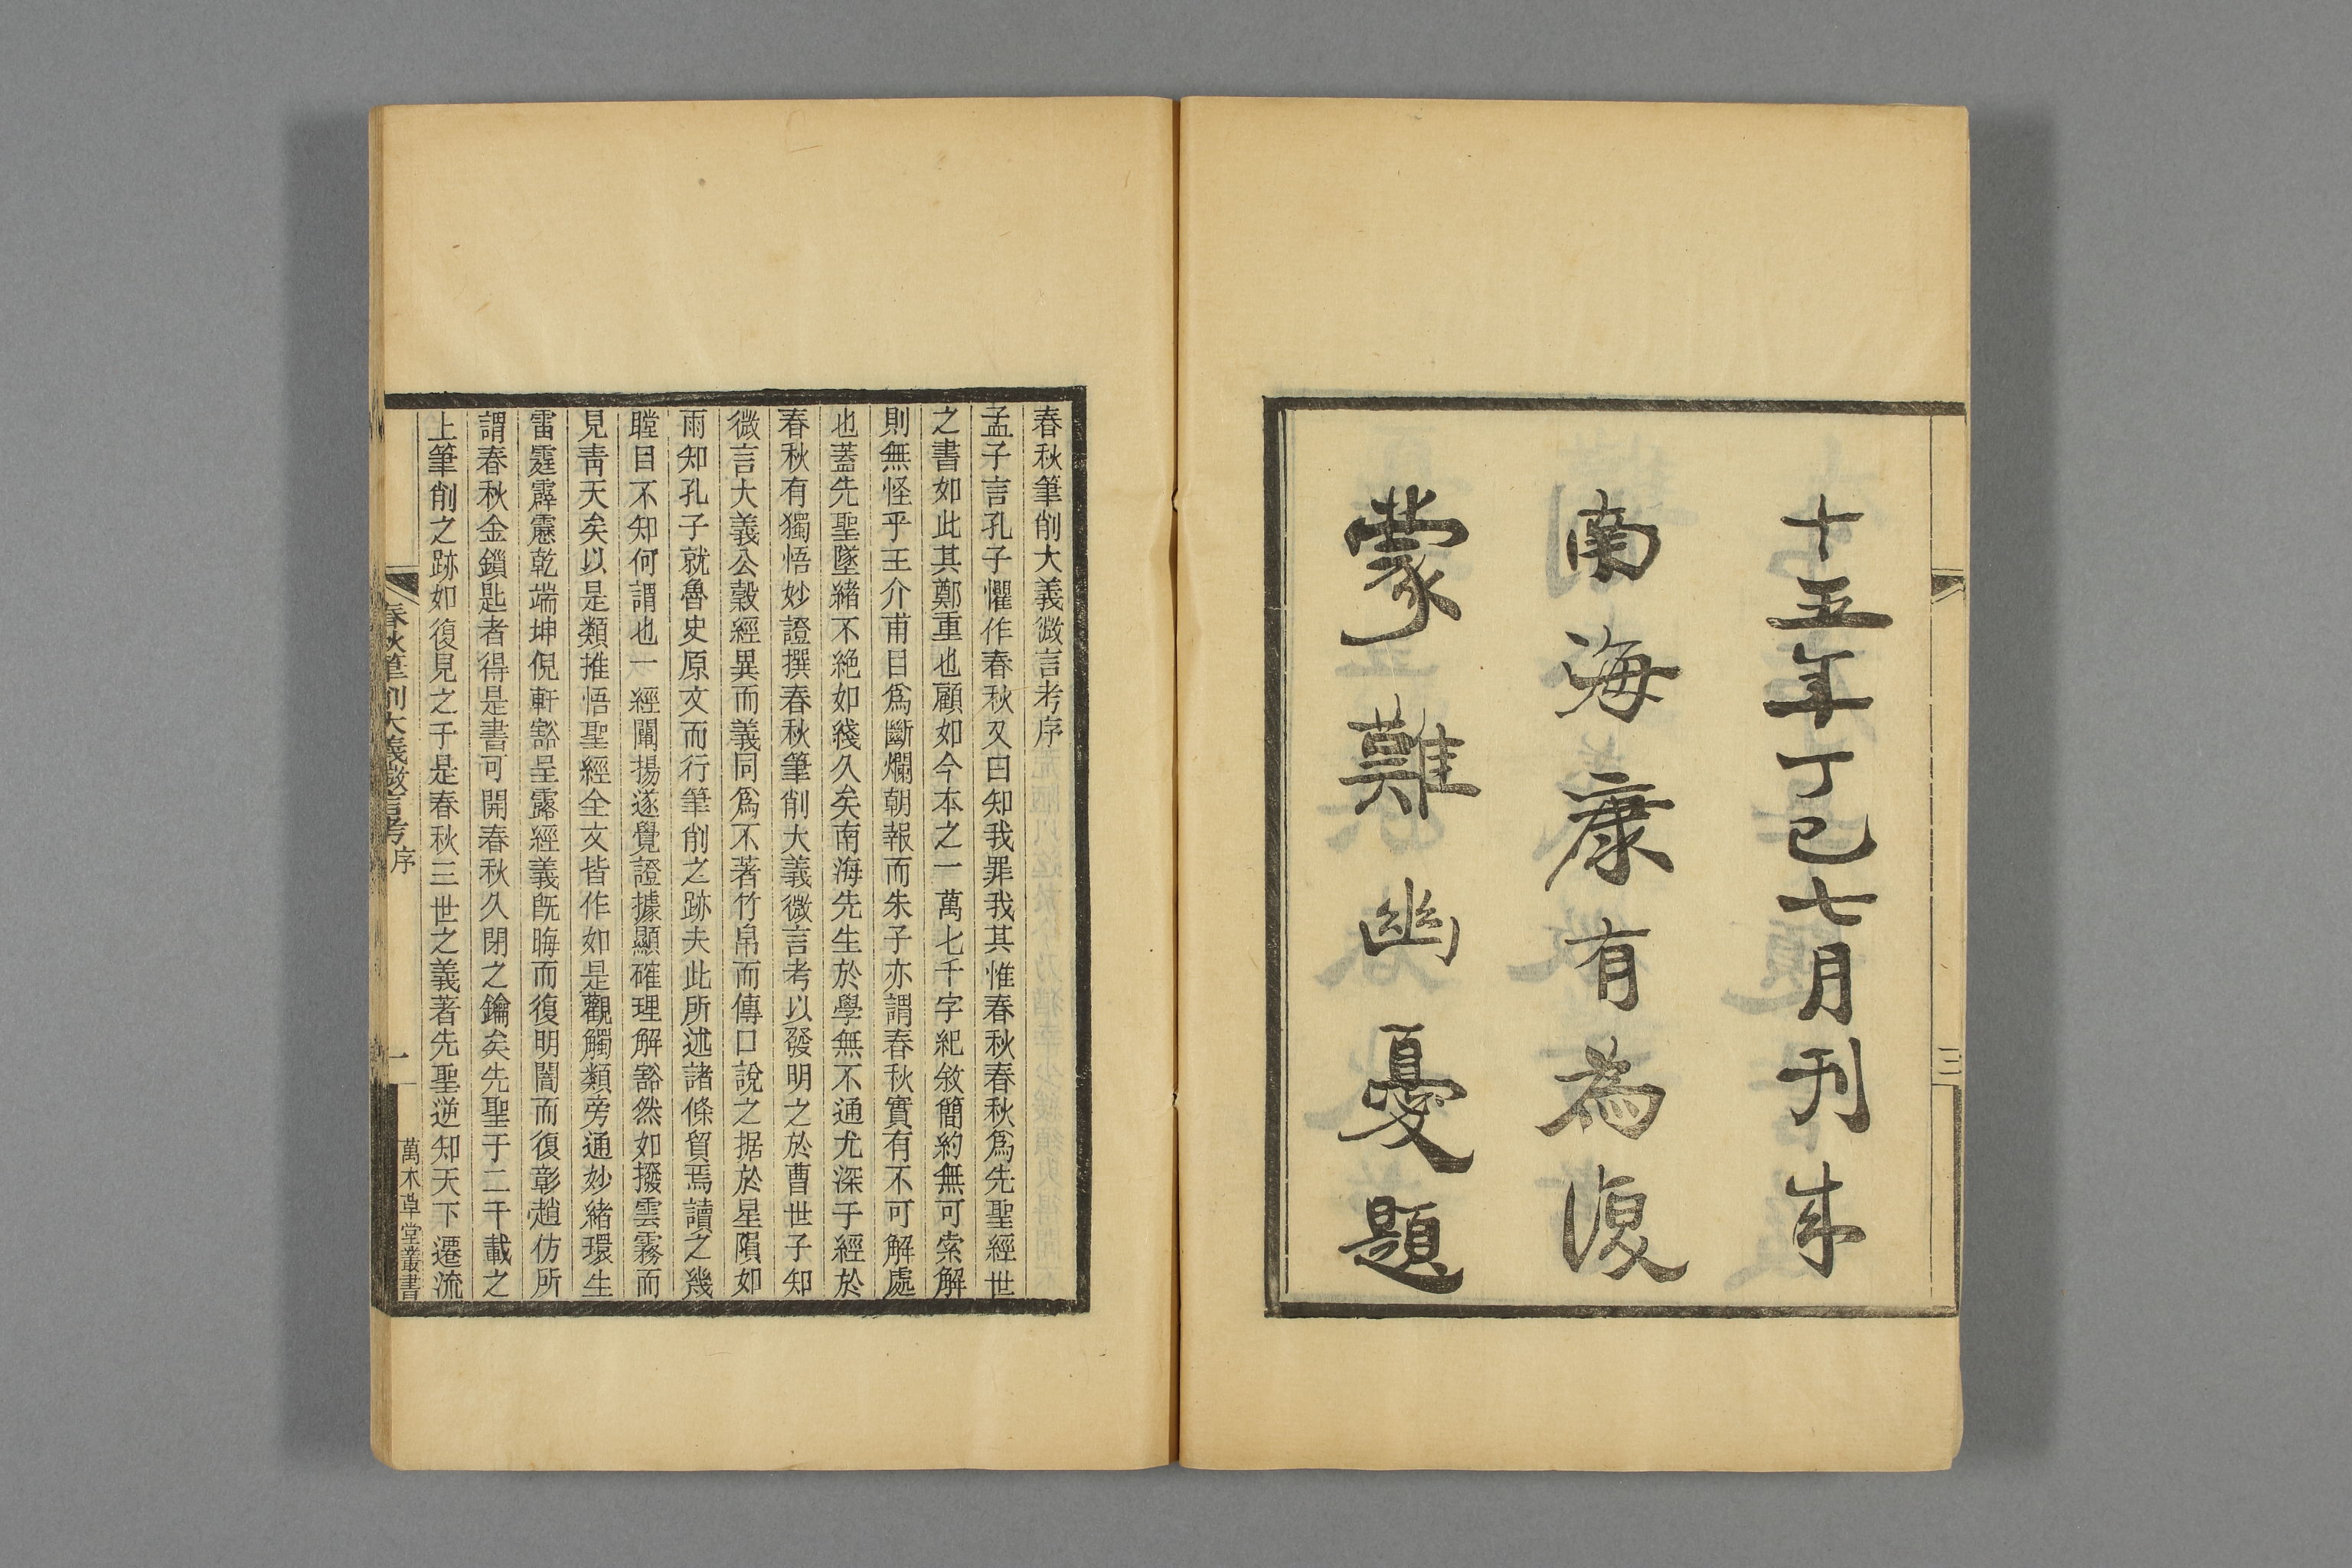 十五年丁巳七月刊成
南海康有為復
蒙難幽憂題
三
春秋筆削大義微言考序
孟子言孔子懼作春秋又曰知我罪我其惟春秋春秋爲先聖經世
之書如此其鄭重也顧如今本之一萬七千字紀敘簡約無可索解
則無怪乎王介甫目爲斷爛朝報而朱子亦謂春秋實有不可解處
也蓋先聖墜緒不絶如綫久矣南海先生於學無不通尤深于經於
春秋有獨悟妙證撰春秋筆削大義微言考以發明之於曹世子知
微言大義公穀經異而義同爲不著竹帛而傳口說之据於星隕如
雨知孔子就魯史原文而行筆削之跡夫此所述諸條貿焉讀之幾
瞠目不知何謂也一經闡揚遂覺證據顯確理解豁然如撥雲霧而
見靑天矣以是類推悟聖經全文皆作如是觀觸類旁通妙緒環生
雷霆霹靂乾端坤倪軒豁呈露經義旣晦而復明闇而復彰趙仿所
謂春秋金鎖匙者得是書可開春秋久閉之鑰矣先聖于二千載之
上筆削之跡如復見之于是春秋三世之義著先聖逆知天下遷流
春秋筆削大義微言考序
一
萬木草堂叢書